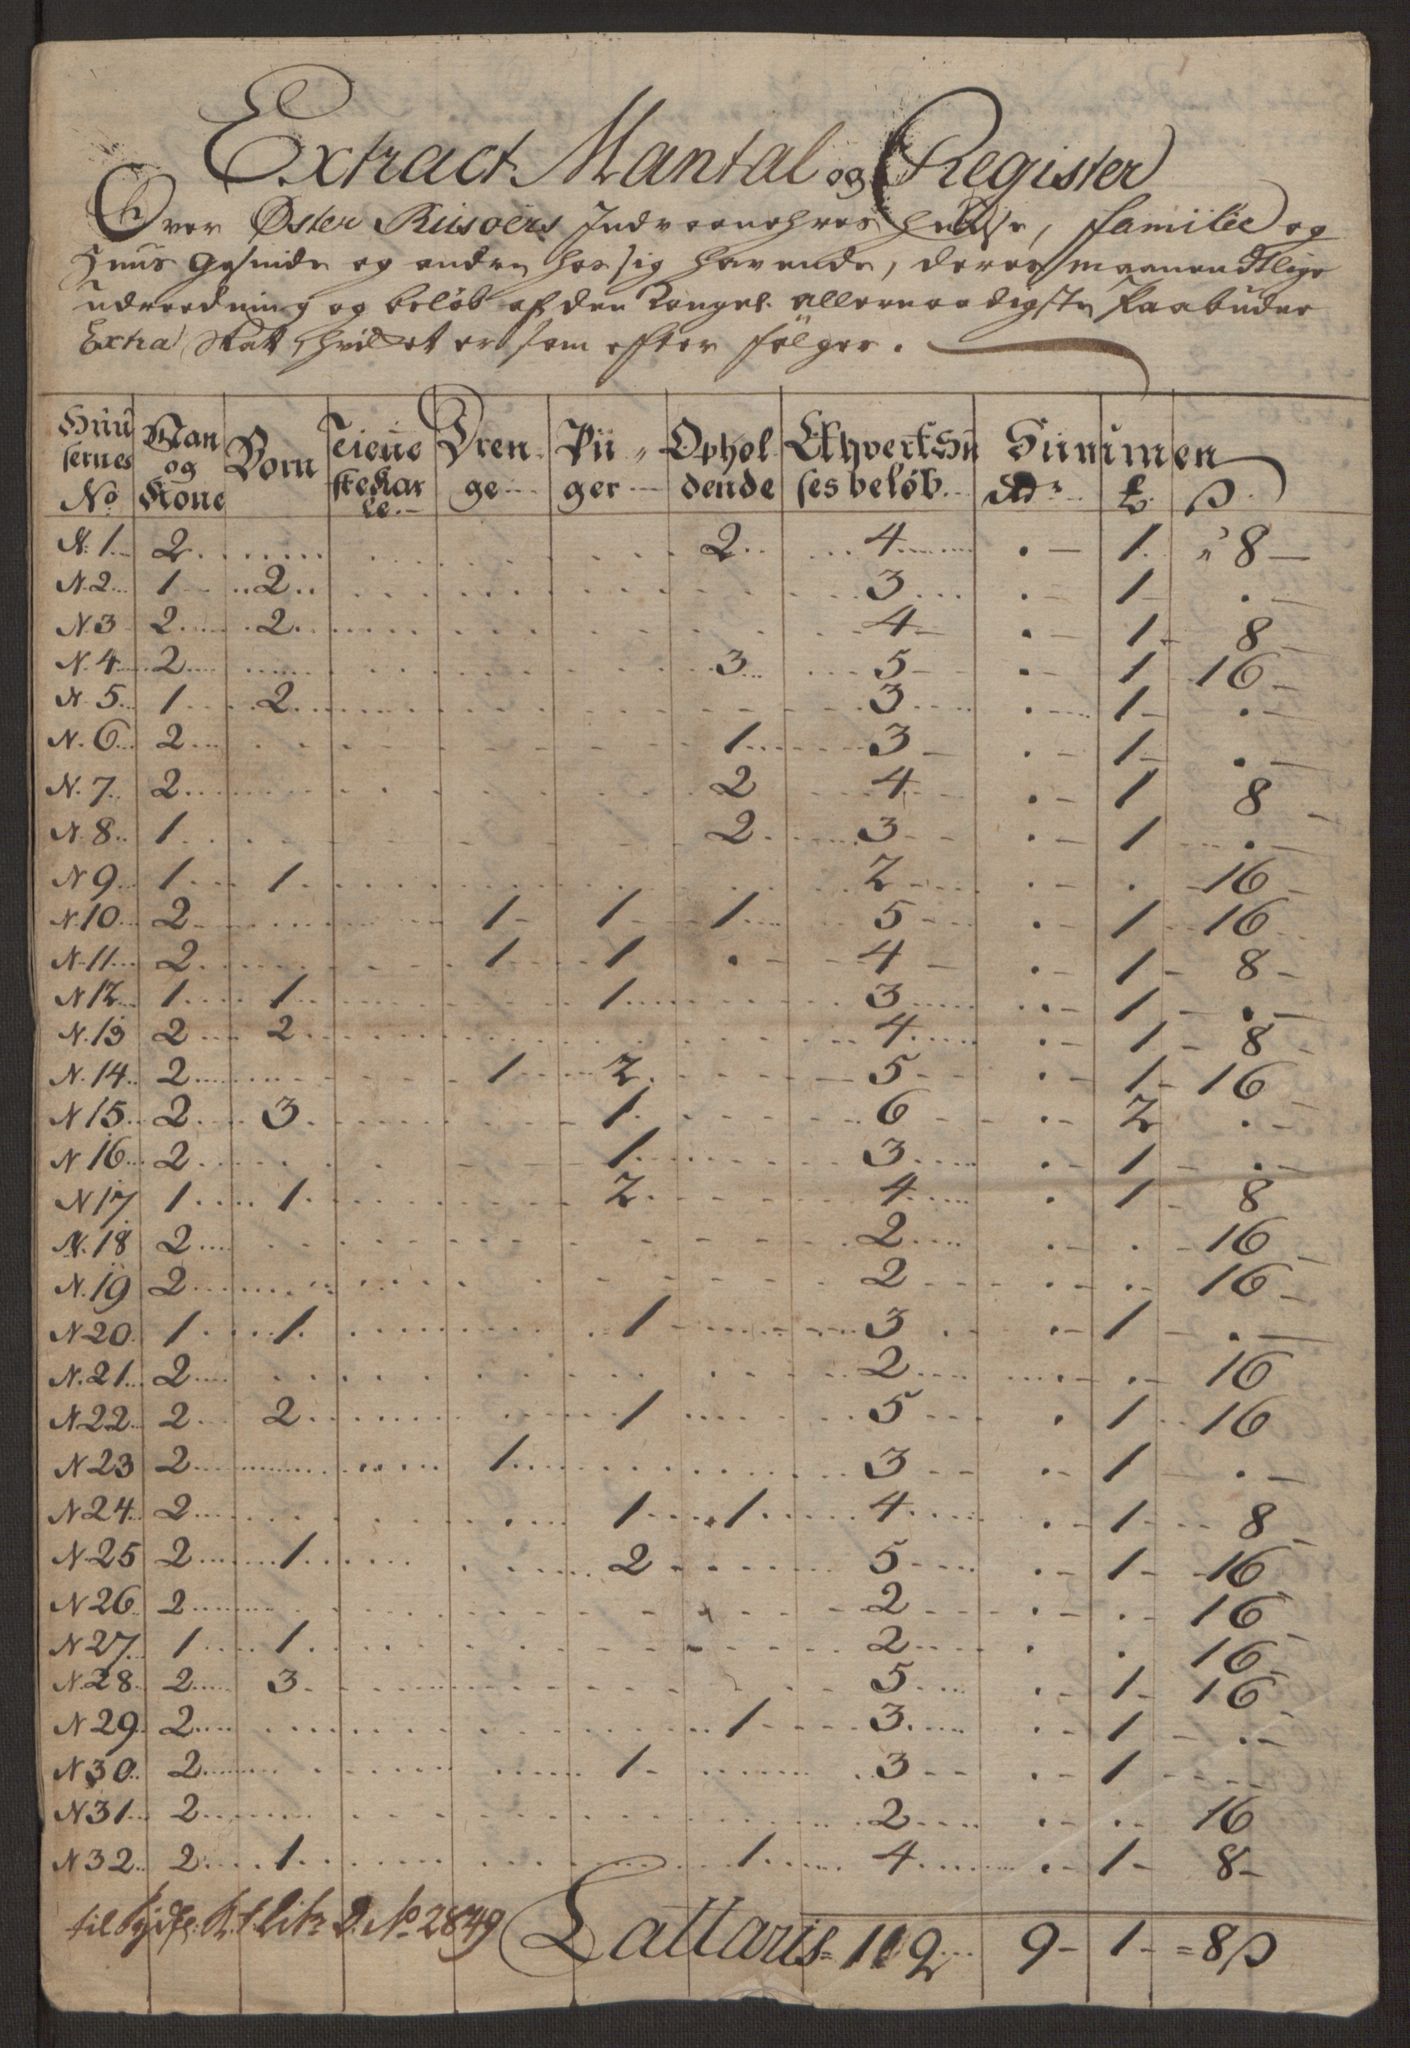 Extract Mantal og Register
Over Øster Riisøers Indvaanehres Huuse, familie og
Huus gesinde og andre hos sig havende, deres maanendtlige
udreedning og beløb af den Kongel. allernaadigste Paabudne
Extra Skatt, hvilket er som efter følger.
Huu sernes No | Man og Kone | Børn | Tiene ste Kar le | Dren ge | Pii ger | Ophol dende | Ethvert Huu ses beløb | Summen Rdr | ƶ | ß
N. 1 2 2 4 . - 1 " 8 -
N. 2 1 2 3 . - 1 - . -
N. 3 2 2 4 - . - 1 - 8 -
N. 4 2 3 5 - . - 1 16 -
N. 5 1 2 3 . - 1 - . -
N. 6 2 1 3 - . - 1 - . -
N. 7 2 2 4 . - 1 8
N. 8 1 2 3 - . - 1 . -
N 9 1 1 2 . - . - 16 -
N. 10 2 1 - 1 - 1 5 - . 1 16
N. 11 2 1 - 1 . - 4 - . - 1 - 8 -
N 12 1 1 1 3 . - 1 - . -
N. 13 2 2 4 . - 1 - 8
N. 14 2 1 2 5 - . - 1 - 16
N 15 2 3 1 6 . - 2 . -
N 16 2 1 3 . - 1 - . -
N 17 1 1 2 4 . 1 - 8
N. 18 2 2 . - . - 16 -
N. 19 2 2 . - . 16 -
N 20 1 1 1 - 3 . - 1 - . -
N. 21 2 2 . - . - 16
N 22 2 2 1 5 . 1 16
N 23 2 1 3 . - 1 . -
N 24 2 1 1 4 . - 1 - 8 -
N 25 2 1 2 5 - . - 1 - 16
N 26 2 2 . - . - 16 -
N 27 1 1 2 . . 16 -
N. 28 2 3 5 . - 1 - 16
N 29 2 1 3 . - 1 - . -
N 30 2 1 - 3 - . - 1 -
N 31 2 2 . - . - 16
N 32 2 1 1 4 . - 1 - 8 -
No 2849 Lattaris = 112 9 - 1 - = 8 ß